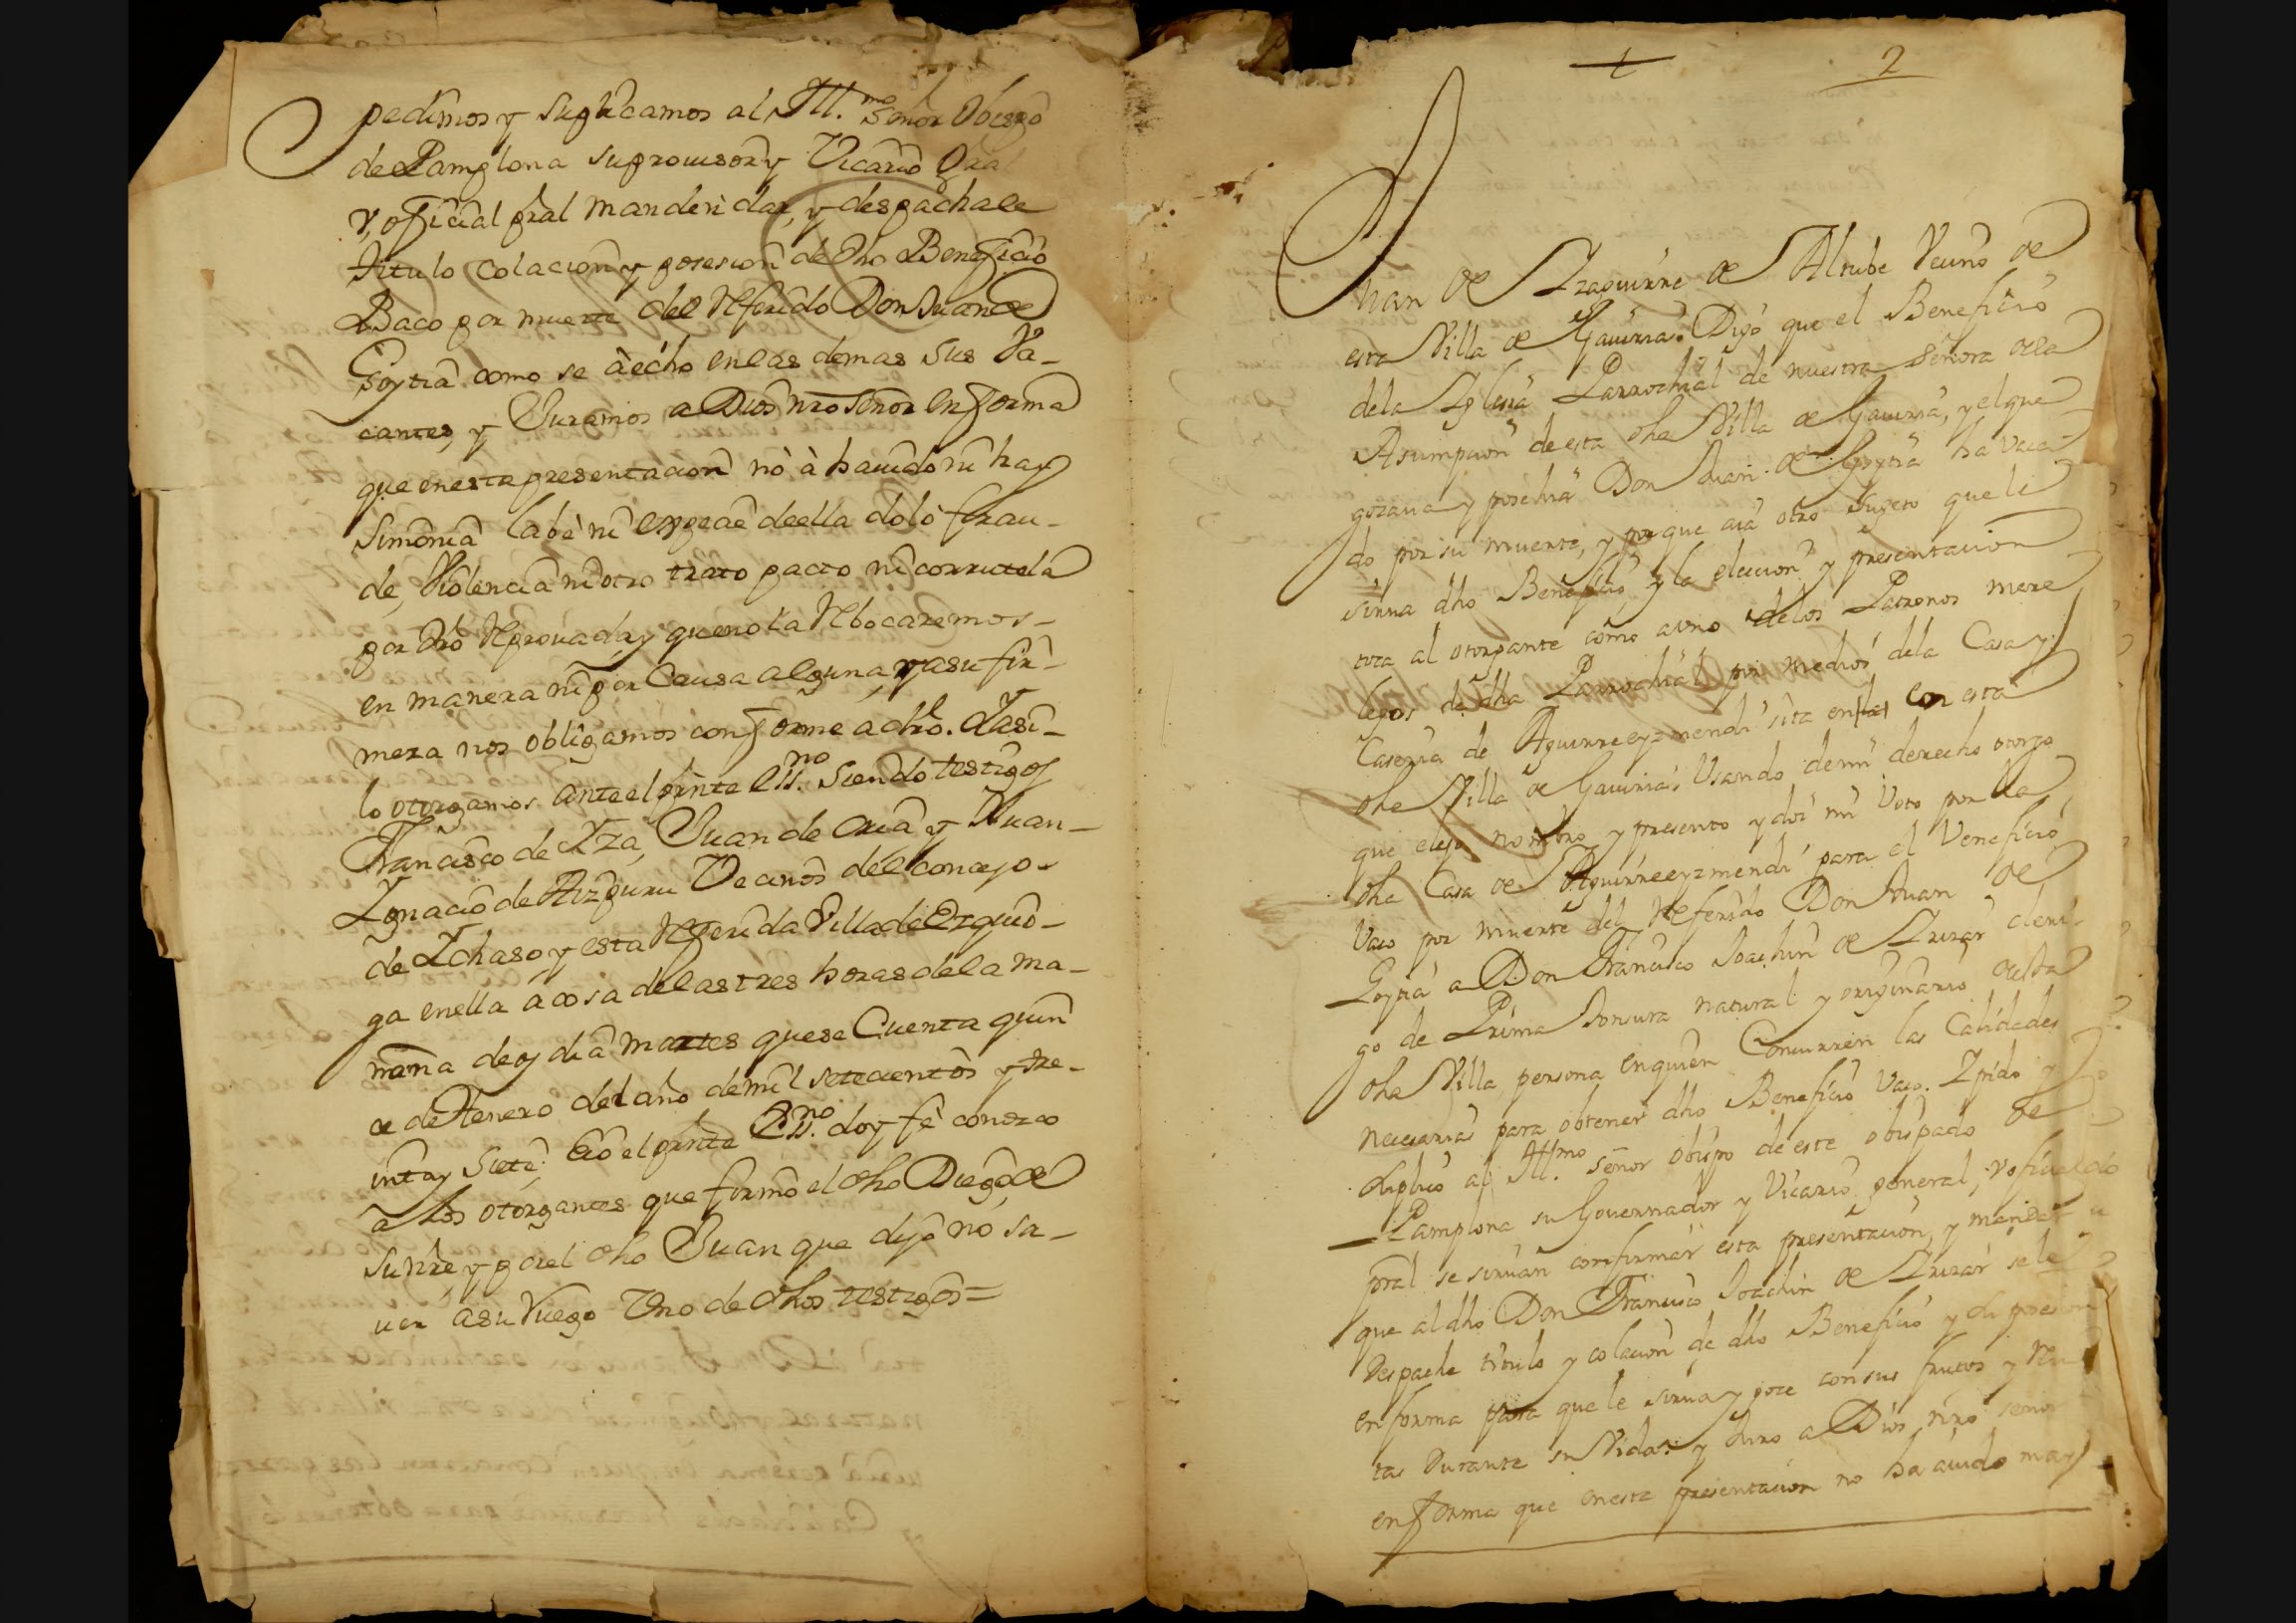 pedimos y suplicamos al Ill.mo Señor Obispo
de Pamplona su provisor y Vicario Gral
y, oficial pral manden dar, y despachale
titulo colacion y posesion de dho Beneficio
Baco por muerte del Referido Don Juan de
Goytia como se à echo en las demas sus Va-
cantes, y Juramos a Dios nro Señor en forma
que en esta presentacion nò à hauido ni hay
Simonia labè ni espeçie de ella dolò frau-
de, Violencia ni otro trato pacto ni corrutela
por dro Reprouada, y que no la Rebocaremos-
en manera ni por Causa alguna, y a su fir-
meza nos obligamos conforme a dro. Y asi-
lo otorgamos ante el prnte Ess.no Siendo testigos
Francisco de Yza, Juan de Oria y Juan-
Ygnacio de Aizpuru Vecinos del concejo-
de Ychaso y esta Referida Villa de Ezquio-
ga en ella à cosa de las tres horas de la ma-
ñana de oy dia martes que se Cuenta quin
ce de Henero del año de mil setecientos y tre-
inta y Siete; E io el prnte Ess.no doy fè conozco
a los otorgantes que firmò el dho Diego de
Suirre, y por el dho Juan que dijo nò sa-
uer a su Ruego Vno de dhos testigos=
1 2
Juan de Yzaguirre de Altube Vecino de
esta Villa de Gauiria: Digo que el Beneficio
de la Yglesia Parrochial de nuestra señora de la
Asumpcion de esta dha Villa de Gauiria, y el que
gozaua y posehia Don Juan de Goytia ha vaca-
do por su muerte, y porque aia otro Sugeto que le
sirua dho Beneficio, y la eleccion y presentacion
toca al otorgante como a vno de los Patronos mere
legos de dha Parrochial por medio de la Casa y
Caseria de Aguirreeyzmendi sita en esta
dha Villa de Gauiria: Vsando de mi derecho otorgo
que elijo nombro y presento y doi mi Voto por la
dha Casa de Aguirreeyzmendi para el Veneficio
Vaco por muerte del Referido Don Juan de
Goytia a Don Francisco Joachin de Yrizar cleri-
go de Prima Tonsura natural y originario de esta
dha Villa persona en quien Concurren las Calidades
necesarias para obtener dho Beneficio Vaco. Y pido y
suplico al Ill.mo señor obispo de este obispado de
Pamplona su Gouernador y Vicario general, y oficial
pral se siruan confirmar esta presentacion, y mandar
que al dho Don Francisco Joachin de Yrizar se le
Despache titulo y colacion de dho Beneficio y de posesion
en forma para que le sirua y goze con sus frutos y Ren
tas Durante su Vida: y Juro a Dios nro señor
en forma que en esta presentacion no ha auido ni ay